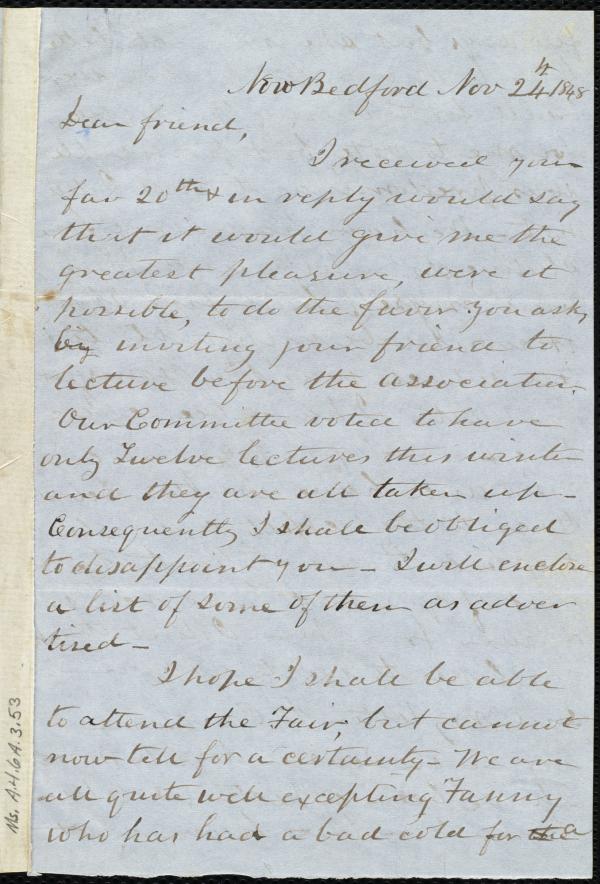 New Bedford Nov 24th 1848
Dear friend,
I received your
fav 20th & in reply would say
that it would give me the
greatest pleasure, were it
possible, to do the favor you ask,
by inviting your friend to
lecture before the association.
Our Committee voted to have
only Twelve lectures this winter
and they are all taken up -
Consequently I shall be obliged
to disappoint you - I will enclose
a list of some of them as adver
tised -
I hope I shall be able
to attend the Fair, but cannot
now tell for a certainty - We are
all quite well excepting Fanny
who has had a bad cold for the a
Ms. A.4.6A.3.53